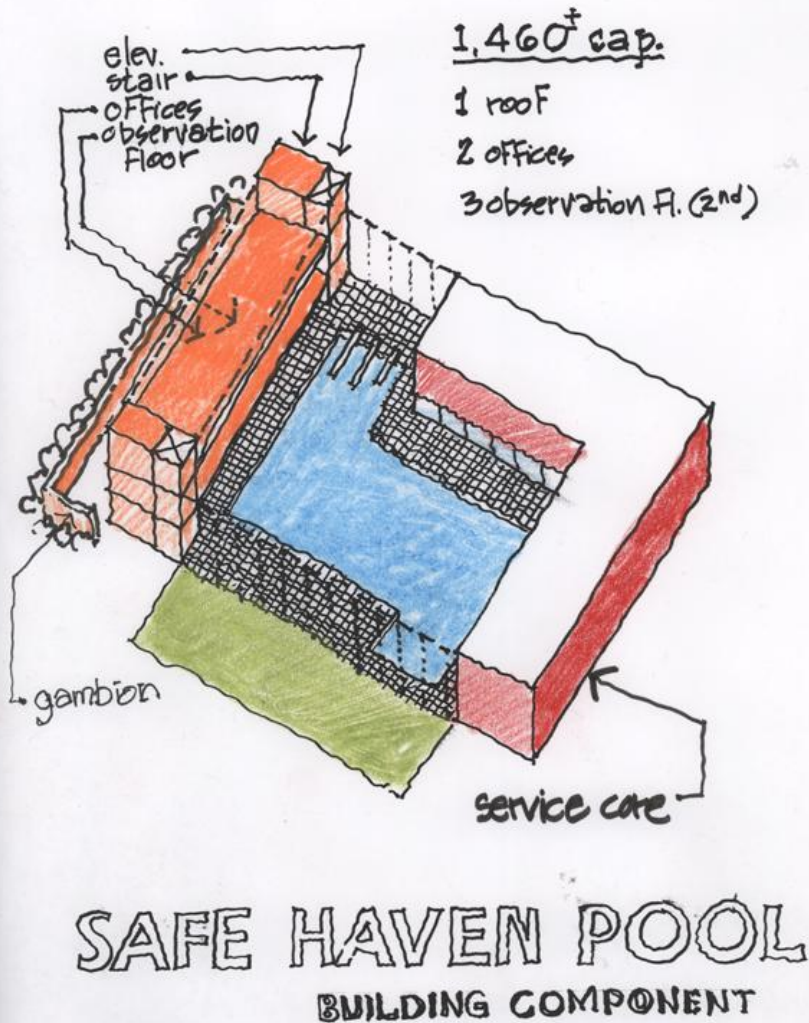 elev.
stair
offices
observation
floor
1,460± cap.
1 roof
2 offices
3 observation fl. (2nd)
gambion
service core
SAFE HAVEN POOL
BUILDING COMPONENT